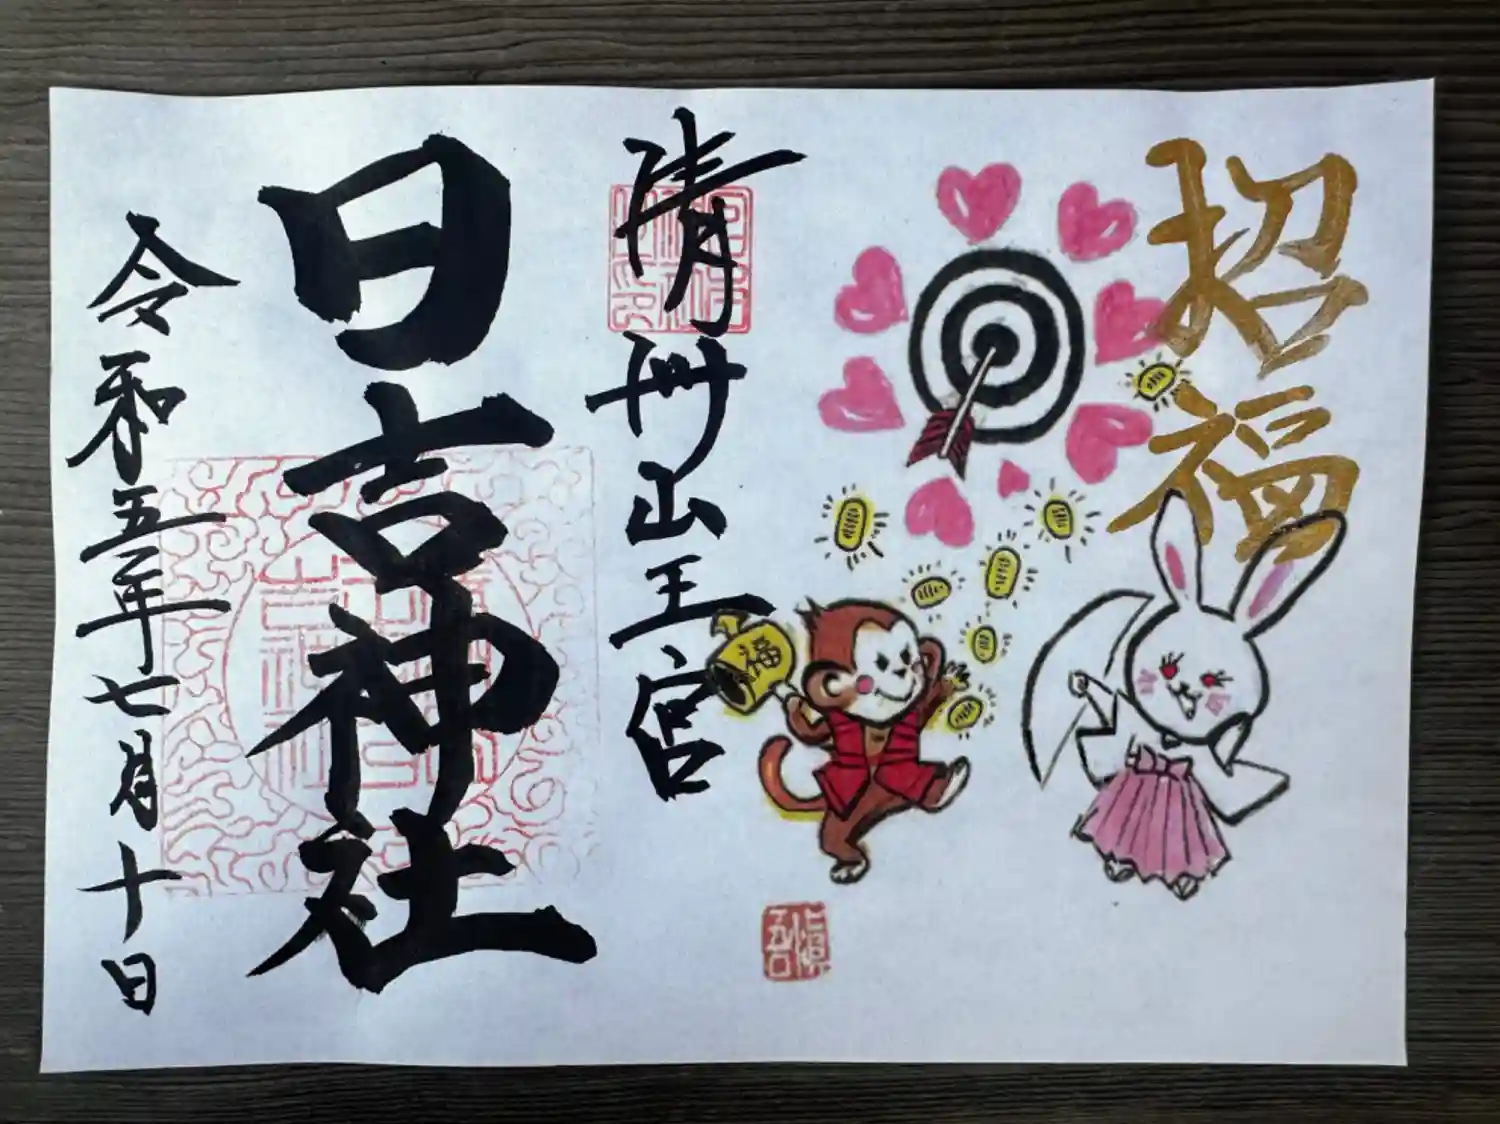 招福
福
清洲山王宮
日吉神社
令和五年七月十日